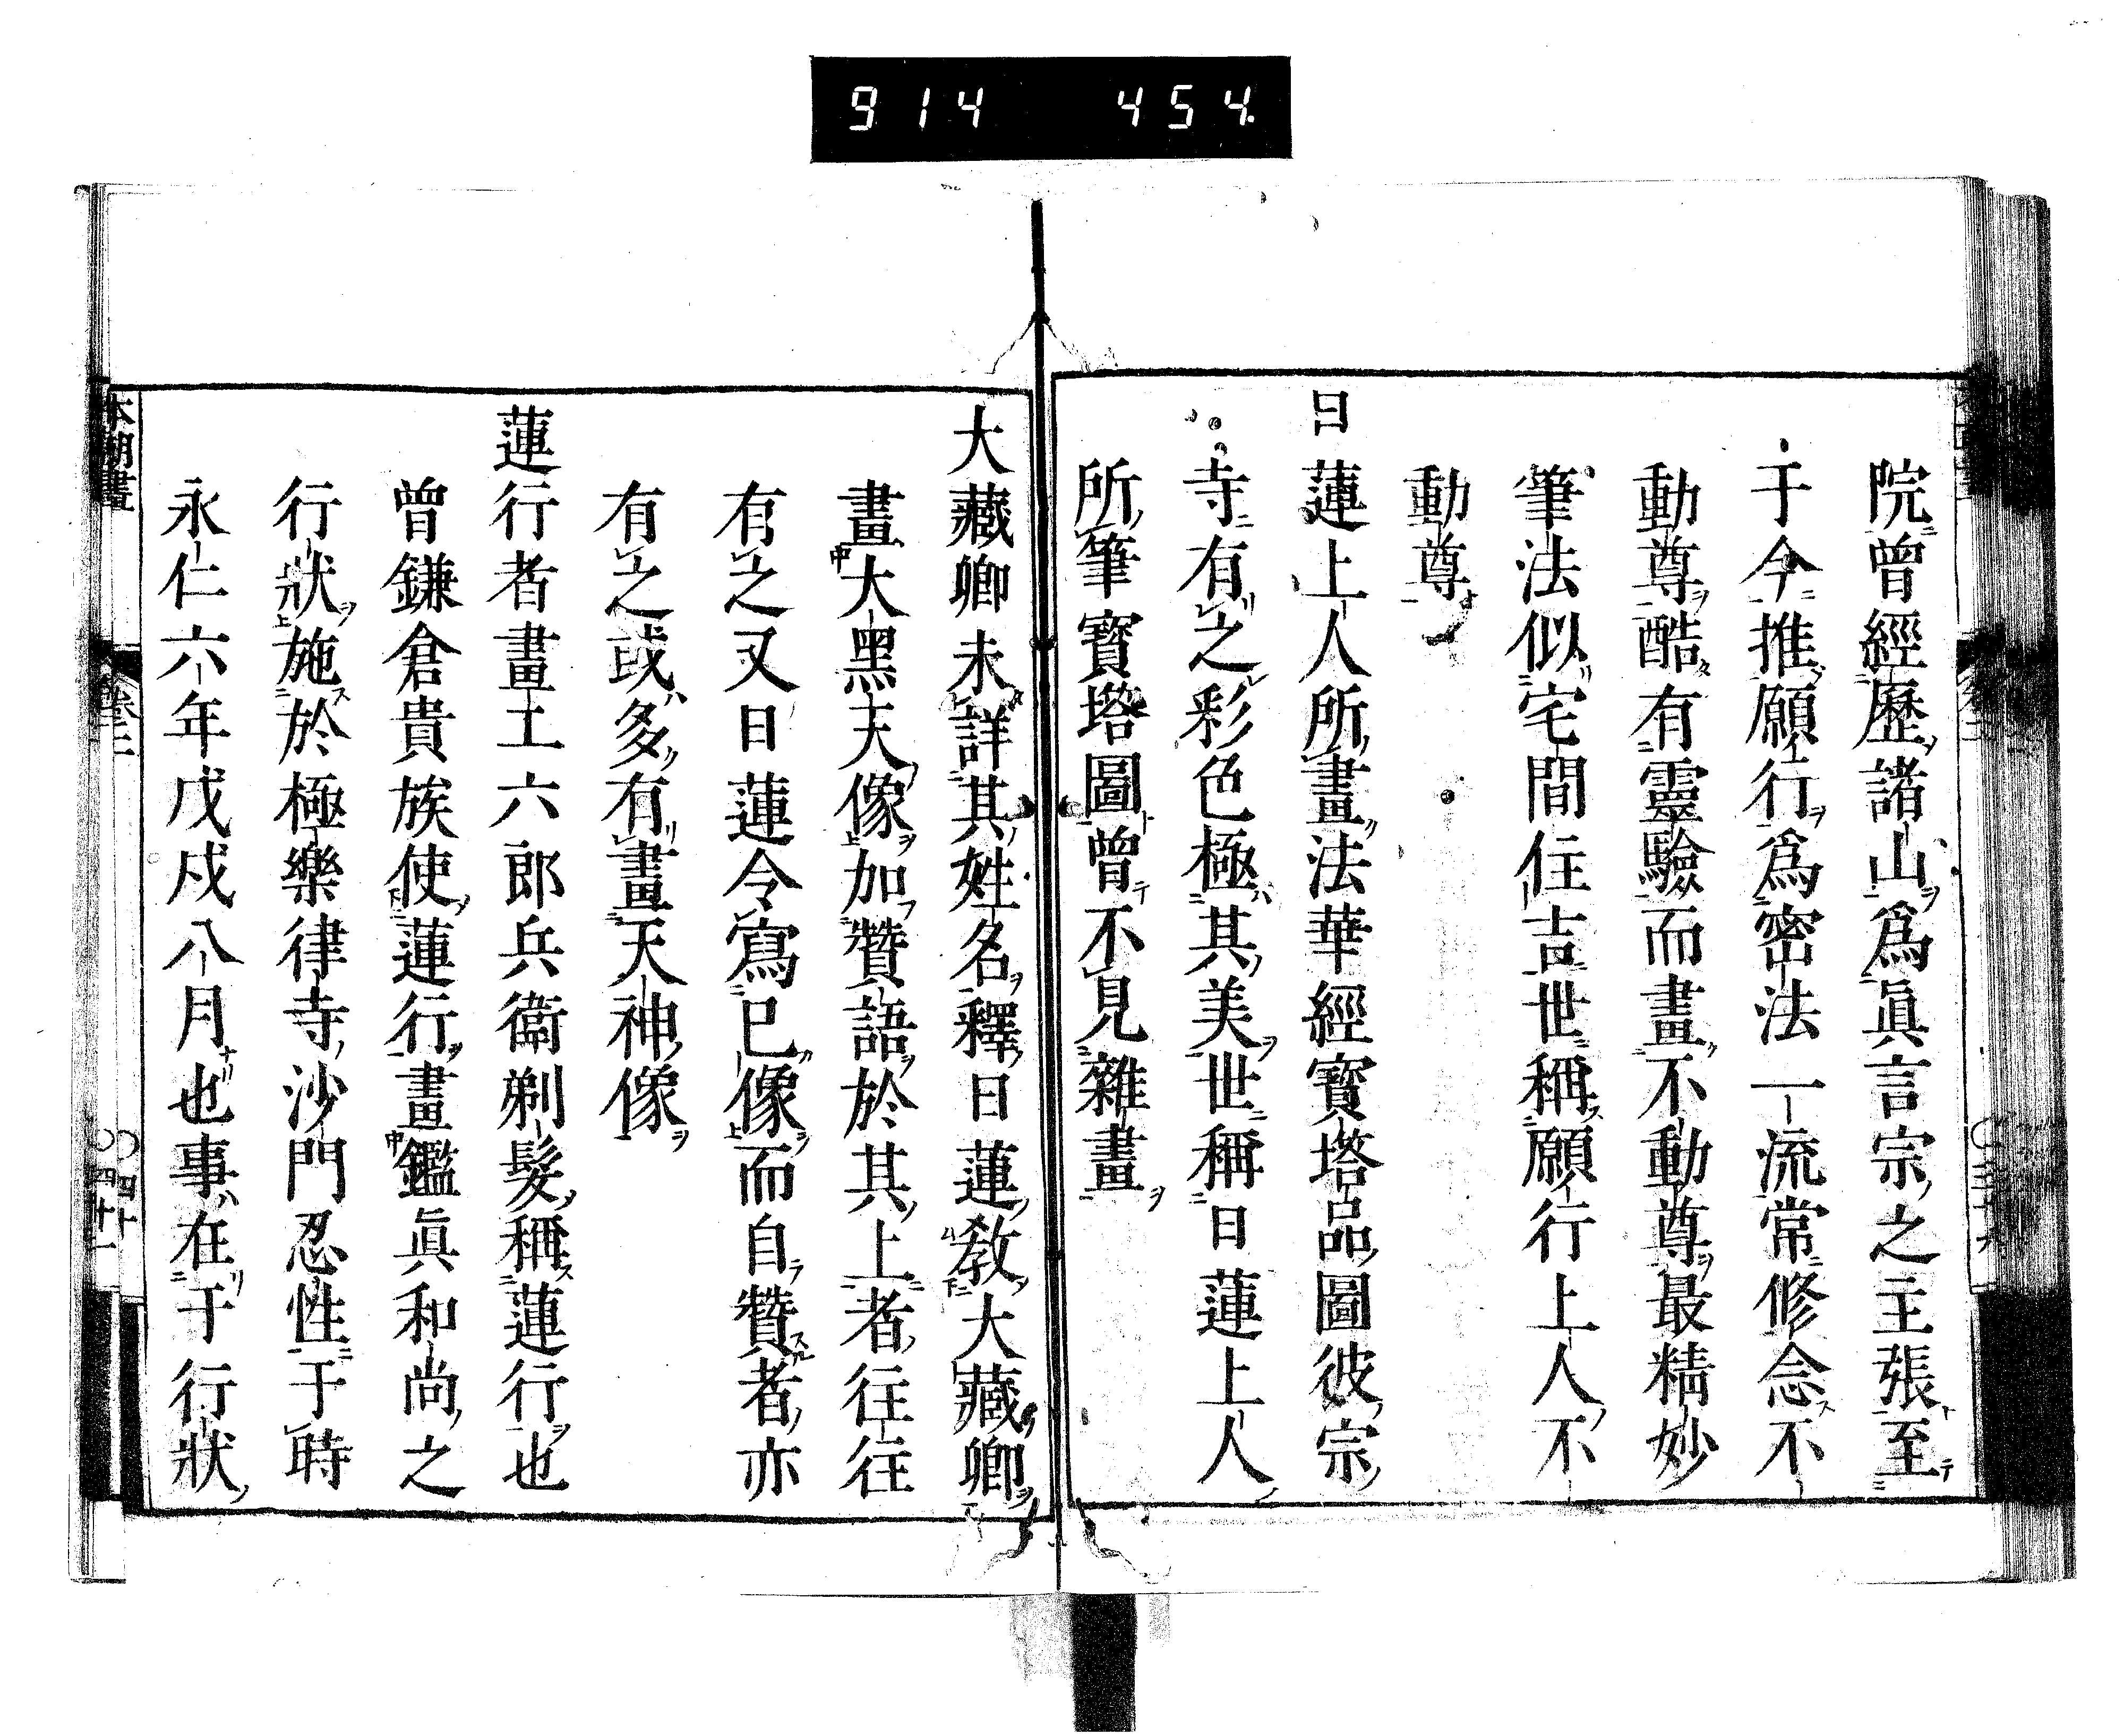 914 454
院曾經歷諸山爲眞言宗之主張至
于今推願行爲密法一流常修念不
動尊酷有靈驗而畫不動尊最精妙
筆法似宅間住吉世稱願行上人不
動尊
日蓮上人所畫法華經寳塔品圖彼宗
寺有之彩色極其美世稱日蓮上人
所筆寳塔圖曾不見雜畫
大藏卿未詳其姓名釋日蓮敎大藏卿
畫大黑天像加贊語於其上者往往
有之又日蓮令寫已像而自贊者亦
有之或多有畫天神像
蓮行者畫工六郎兵衛剃髮稱蓮行也
曾鎌倉貴族使蓮行畫鑑眞和尚之
行狀施於極樂律寺沙門忍性于時
永仁六年戊戌八月也事在于行狀
本朝畫 卷三 四十 四十一